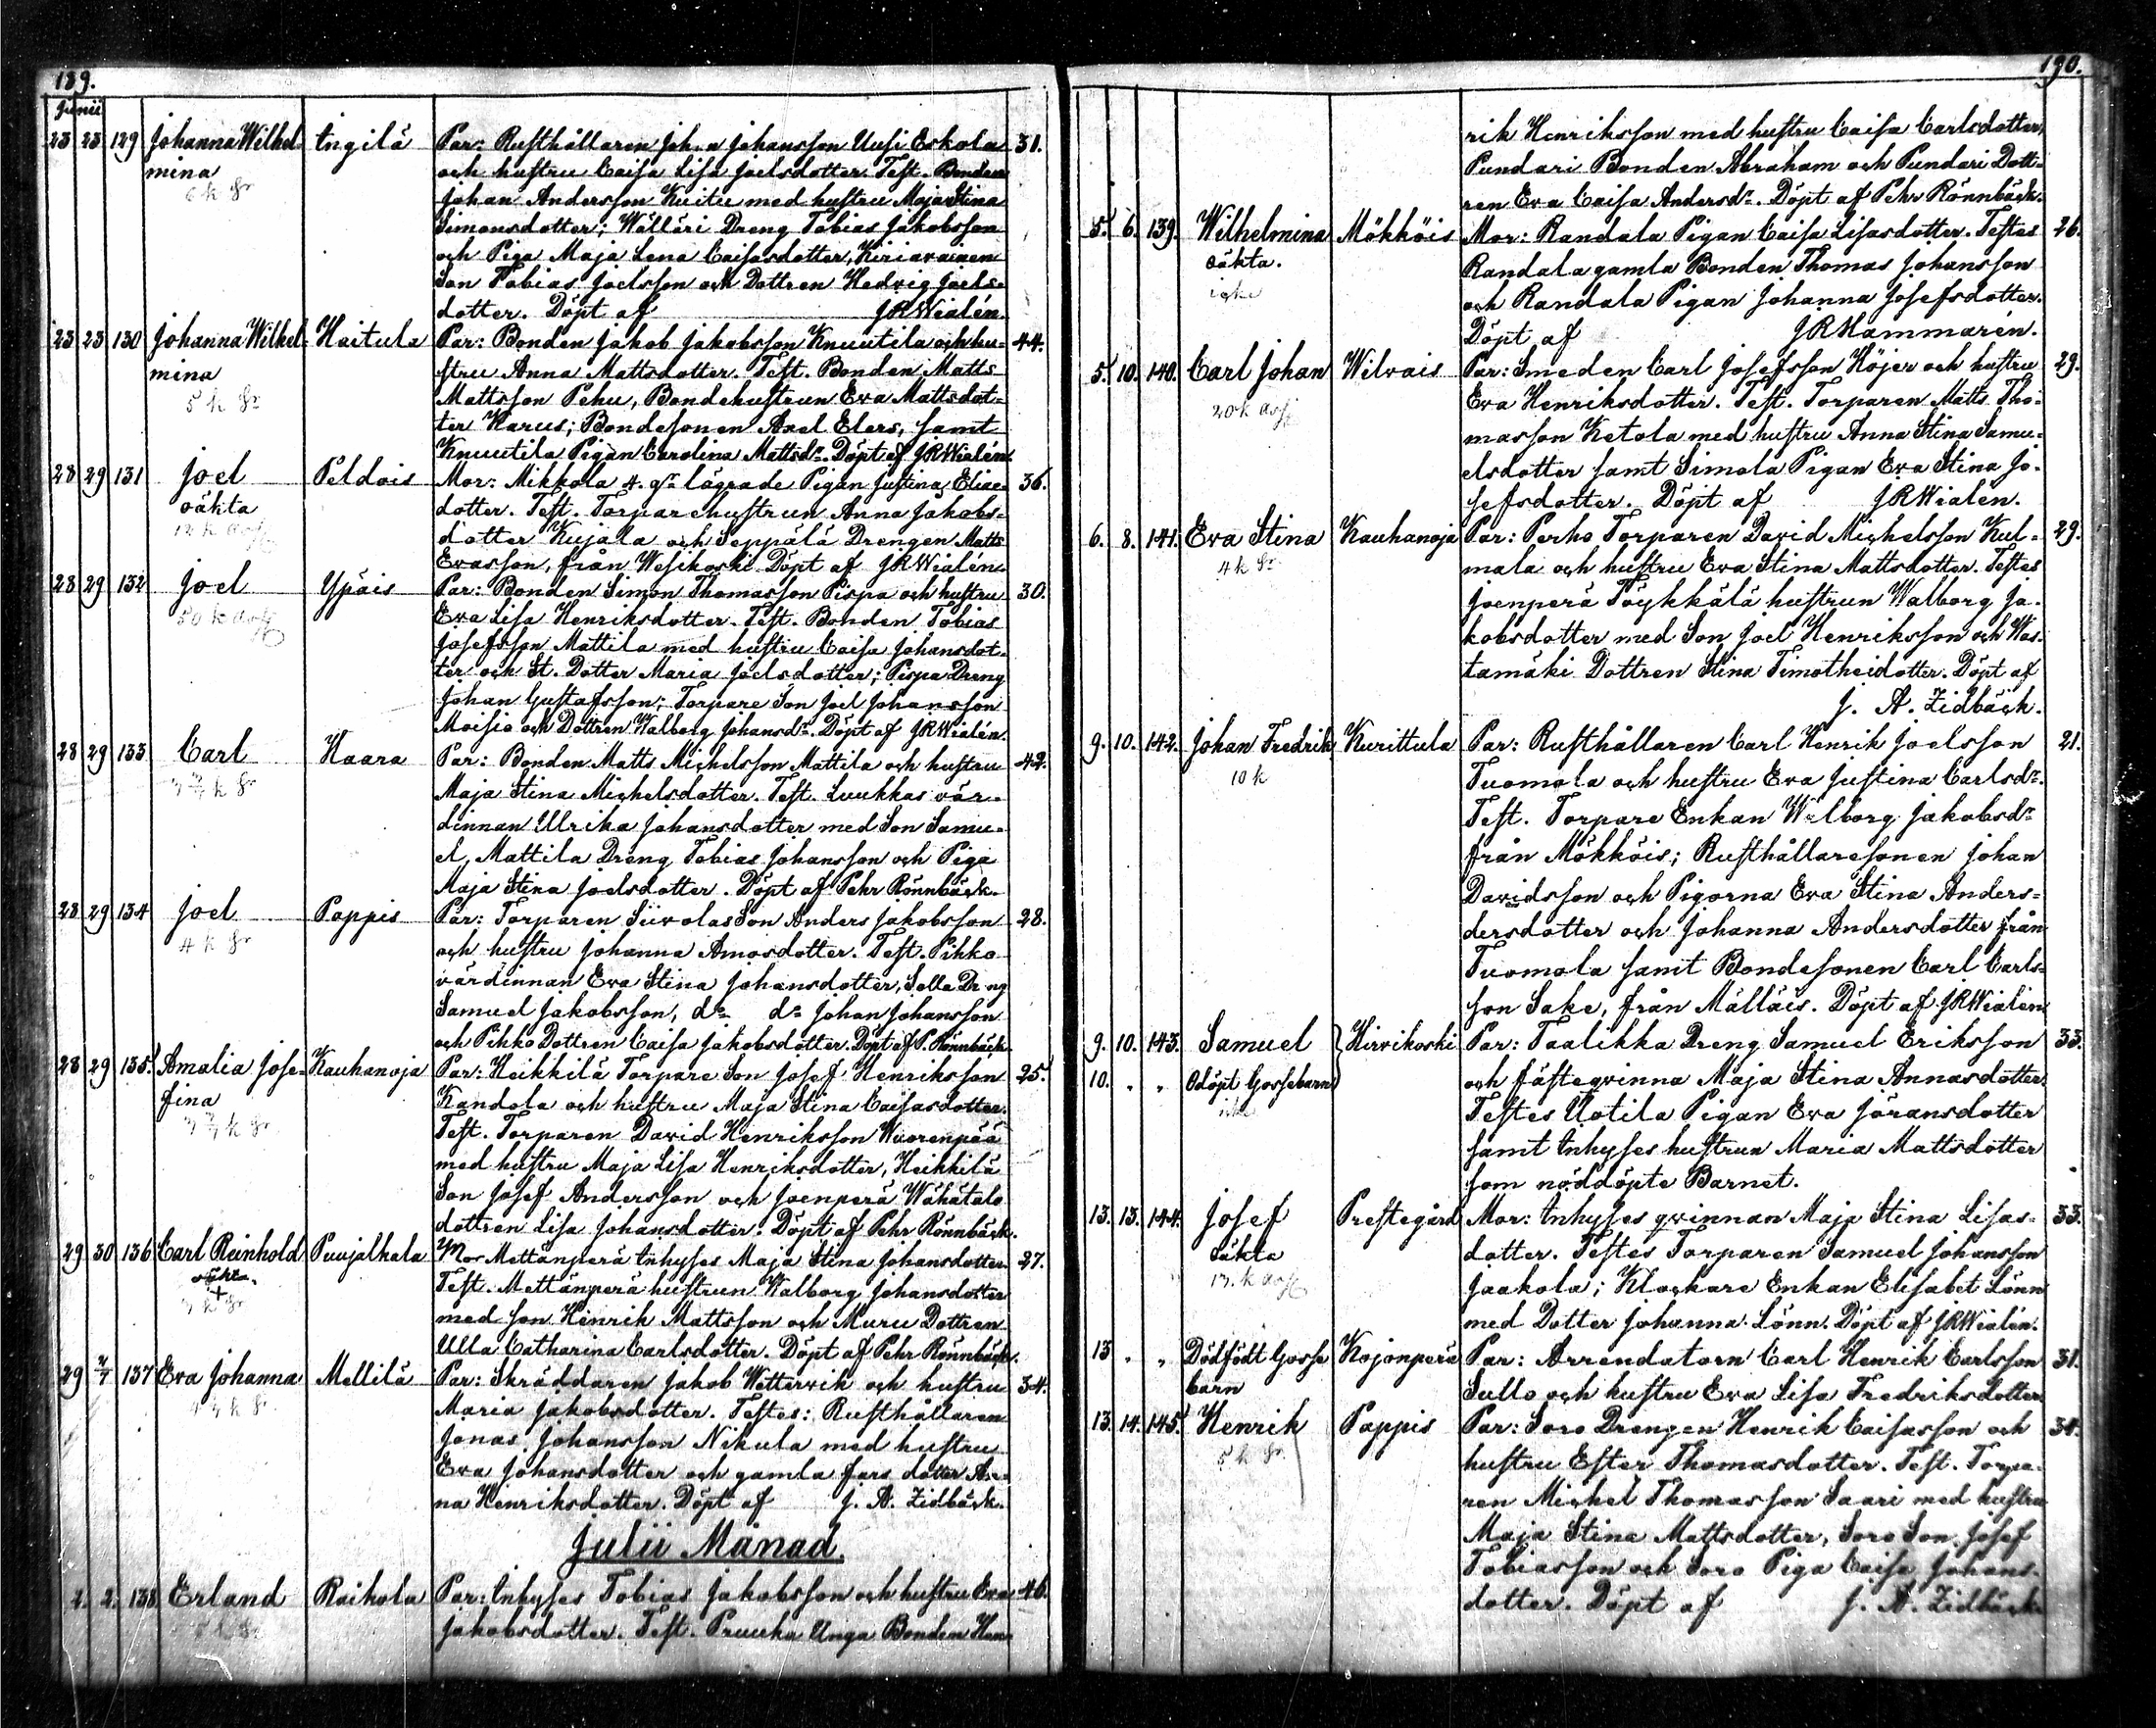 189.
Junii
23 23 129 Johanna Wilhel- Ingilä Par: Rusthållaren Johan Johansson Uusi Eskola 31.
mina och hustru Caisa Lisa Joelsdotter. Test. Bonden
6 k Sr Johan Andersson Kuitu med hustru Maja Stina
Simonsdotter; Wälläri Dreng Tobias Jakobsson
och Piga Maja Lena Caisasdotter,
Son Tobias Joelsson och Dottren Hedvig Joels-
dotter. Döpt af JRWialén.
23 23 130 Johanna Wilhel- Haitula Par: Bonden Jakob Jakobsson Knuutila och hu- 44.
mina stru Anna Mattsdotter. Test. Bonden Matts
5 k Sr Mattsson Pehu, Bondehustrun Eva Mattsdot-
ter Harus; Bondesonen Axel Elers, samt
Knuutila Pigan Carolina Mattsdr. Döpt af JRWialén.
28 29 131 Joel Peldois Mor: Mikkola 4. gr lägrade Pigan Justina Elias- 36.
oäkta dotter. Test. Torparehustrun Anna Jakobs-
dotter Kujala och Seppälä Drengen Matts
Evasson, från Wesikoski. Döpt af JRWialén.
28 29 132 Joel Ypäis Par: Bonden Simon Thomasson Pispa och hustru 30.
50 k Eva Lisa Henriksdotter. Test. Bonden Tobias
Josefsson Mattila med hustru Caisa Johansdot-
ter och St. Dotter Maria Joelsdotter; Pispa Dreng
Johan Gustafsson; Torpare Son Joel Johansson
Moisio och Dottren Walborg Johansdr. Döpt af JRWialén.
28 29 133 Carl Haara Par: Bonden Matts Michelsson Mattila och hustru 42.
Maja Stina Michelsdotter. Test. Luukkas vär-
dinnan Ulrika Johansdotter med Son Samu-
el, Mattila Dreng Tobias Johansson och Piga
Maja Stina Joelsdotter. Döpt af Pehr Rönnbäck.
28 29 134 Joel Pappis Par: Torparen Siivolas Son Anders Jakobsson 28.
4 k Sr och hustru Johanna Amosdotter. Test. Pihko
värdinnan Eva Stina Johansdotter, Salla Dreng
Samuel Jakobsson, do do Johan Johansson
och Pihko Dottren Caisa Jakobsdotter. Döpt af P. Rönnbäck.
28 29 135. Amalia Jose- Kauhanoja Par: Heikkilä Torpare Son Josef Henriksson 25.
fina Kandola och hustru Maja Stina Caisasdotter.
Test. Torparen David Henriksson Wuorenpää
med hustru Maja Lisa Henriksdotter, Heikkilä
Son Josef Andersson och Joenperä Wähätalo
dottren Lisa Johansdotter. Döpt af Pehr Rönnbäck.
29 30 136 Carl Reinhold Puujalkala Mor Mettänperä Inhyses Maja Stina Johansdotter. 27.
oäkta. Test. Mettänperä hustrun Walborg Johansdotter
med son Henrik Mattsson och Muru Dottren
Ulla Catharina Carlsdotter. Döpt af Pehr Rönnbäck.
29 2/7 137 Eva Johanna Mellilä Par: Skräddaren Jakob Wetterwik och hustru 34.
Maria Jakobsdotter. Testes: Rusthållaren
Jonas Johansson Nikula med hustru
Eva Johansdotter och gamla fars dotter An-
na Henriksdotter. Döpt af J. A. Zidbäck.
Julii Månad.
2. 2. 138 Erland Raikola Par: Inhyses Tobias Jakobsson och hustru Eva 46.
Jakobsdotter. Test. Pruuka Unga Bonden Hen-
190.
rik Henriksson med hustru Caisa Carlsdotter,
Pundari Bonden Abraham och Pundari Dott-
ren Eva Caisa Andersdr. Döpt af Pehr Rönnbäck.
5. 6. 139. Wilhelmina Mökköis Mor: Randala Pigan Caisa Lisasdotter. Testes 26.
oäkta. Randala gamla Bonden Thomas Johansson
icke och Randala Pigan Johanna Josefsdotter.
Döpt af JRHammarén.
5. 10. 140. Carl Johan Wilvais Par: Smeden Carl Josefsson Höjer och hustru 29.
20 k Eva Henriksdotter. Test. Torparen Matts Tho-
masson Ketola med hustru Anna Stina Samu-
elsdotter samt Simola Pigan Eva Stina Jo-
sefsdotter. Döpt af JRWialén.
6. 8. 141. Eva Stina Kauhanoja Par: Perho Torparen David Michelsson Kul- 29.
4 k Sr mala och hustru Eva Stina Mattsdotter. Testes
Joenperä Töykkälä hustrun Walborg Ja-
kobsdotter med Son Joel Henriksson och Was-
tamäki Dottren Stina Timotheidotter. Döpt af
J. A. Zidbäck.
9. 10. 142. Johan Fredrik Kurittula Par: Rusthållaren Carl Henrik Joelsson 21.
10 k Tuomola och hustru Eva Justina Carlsdr.
Test. Torpare Enkan Walborg Jakobsdr
från Mökköis; Rusthållaresonen Johan
Davidsson och Pigorna Eva Stina Anders-
dersdotter och Johanna Andersdotter från
Tuomola samt Bondesonen Carl Carls-
son Sake, från Mälläis. Döpt af JRWialén
9. 10. 143. Samuel } Hirvikoski Par: Taalikka Dreng Samuel Eriksson 33.
10. " " Odöpt Gossebarn och fästeqvinna Maja Stina Annasdotter.
Testes Uotila Pigan Eva Jöransdotter
samt Inhyses hustrun Maria Mattsdotter
som nöddöpte Barnet.
13. 13. 144. Josef Prestegård Mor: Inhyses qvinnan Maja Stina Lisas- 33.
oäkta dotter. Testes Torparen Samuel Johansson
Jaakola; Klockare Enkan Elisabet Lönn
med Dotter Johanna Lönn. Döpt af JRWialén.
13 " " Dödfödt Gosse Kojonperä Par: Arrendatorn Carl Henrik Carlsson 31.
barn Sullo och hustru Eva Lisa Fredriksdotter.
13. 14. 145. Henrik Pappis Par: Soro Drengen Henrik Caisasson och 34.
5 k Sr hustru Ester Thomasdotter. Test. Torpa-
ren Michel Thomasson Saari med hustru
Maja Stina Mattsdotter, Soro Son Josef
Tobiasson och Soro Piga Caisa Johans-
dotter. Döpt af J. A. Zidbäck.